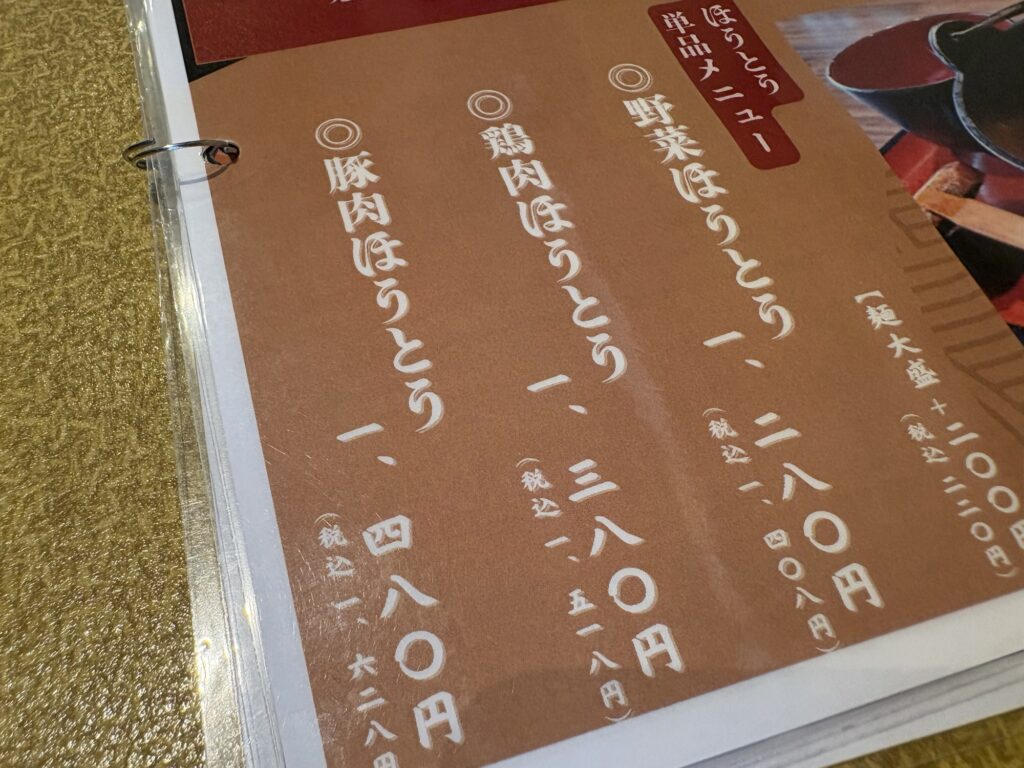 ほうとう
単品メニュー
【麺大盛+二〇〇円
(税込二二〇円)
◎野菜ほうとう
一、二八〇円
(税込一、四〇八円)
◎鶏肉ほうとう
一、三八〇円
(税込一、五一八円)
◎豚肉ほうとう
一、四八〇円
(税込一、六二八円